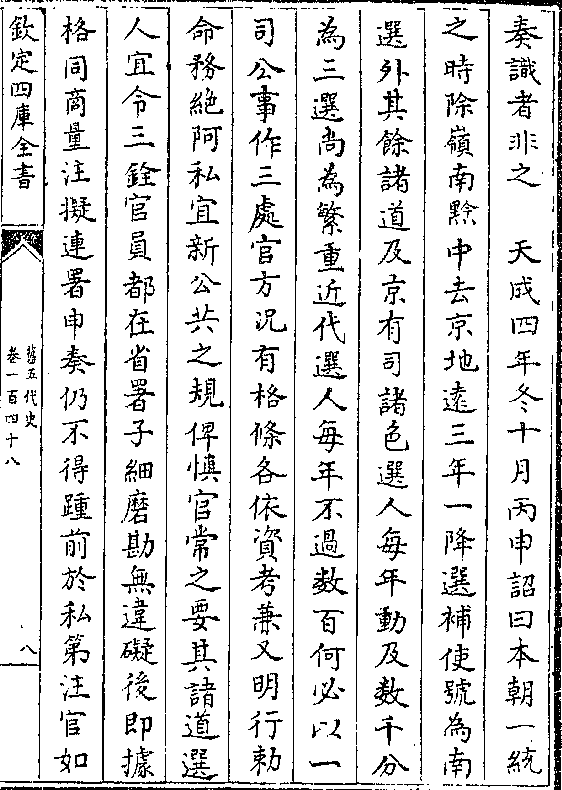 奏識者非之　天成四年冬十月丙申詔曰本朝一統
之時除嶺南黔中去京地遠三年一降選補使號為南
選外其餘諸道及京有司諸色選人每年動及数千分
為三選尚為繁重近代選人每年不過数百何必以一
司公事作三處官方況有格條各依資考兼又明行勅
命務絶阿私宜新公共之規俾慎官常之要其諸道選
人宜令三銓官員都在省署子細磨勘無違礙後即據
格同商量注擬連署申奏仍不得踵前於私第注官如
欽定四庫全書
舊五代史
卷一百四十八
八